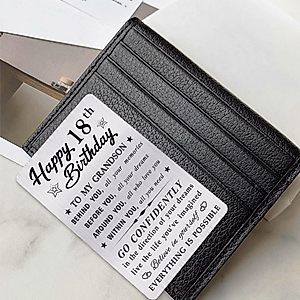 Happy 18th
Birthday
TO MY GRANDSON
BEHIND YOU, all your memories
BEFORE YOU, all your dreams
AROUND YOU, all who love you
WITHIN YOU, all you need
GO CONFIDENTLY
in the direction of your dreams
live the life you've imagined
Believe in yourself
EVERYTHING IS POSSIBLE